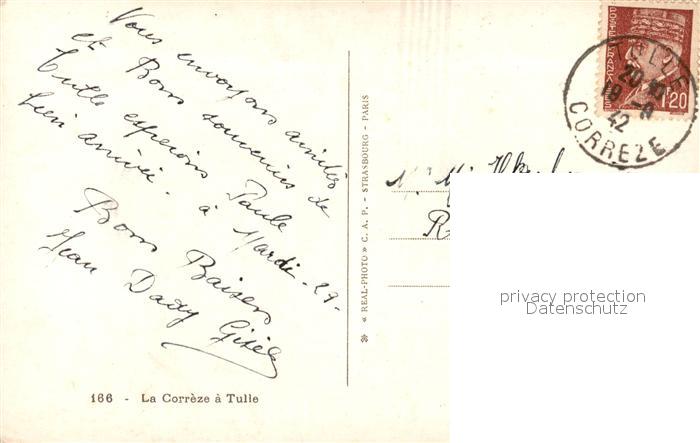 Vous envoyons amitiés
et Bons souvenirs de
Tulle espérons Paule
bien arrivée. à Mardi - 29 -
Bons Baisers
Jean Dady Gisèle
166 - La Corrèze à Tulle
« REAL-PHOTO » C. A. P. - STRASBOURG - PARIS
TULLE
20
18 -8
42
CORREZE
1F20
M. Mme
R
privacy protection
Datenschutz